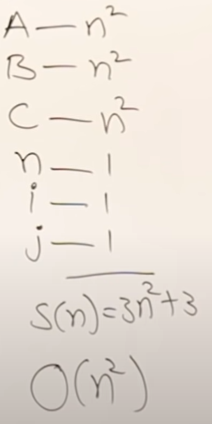 A — n²
B — n²
C — n²
n — 1
i — 1
j — 1
S(n) = 3n²+3
O(n²)